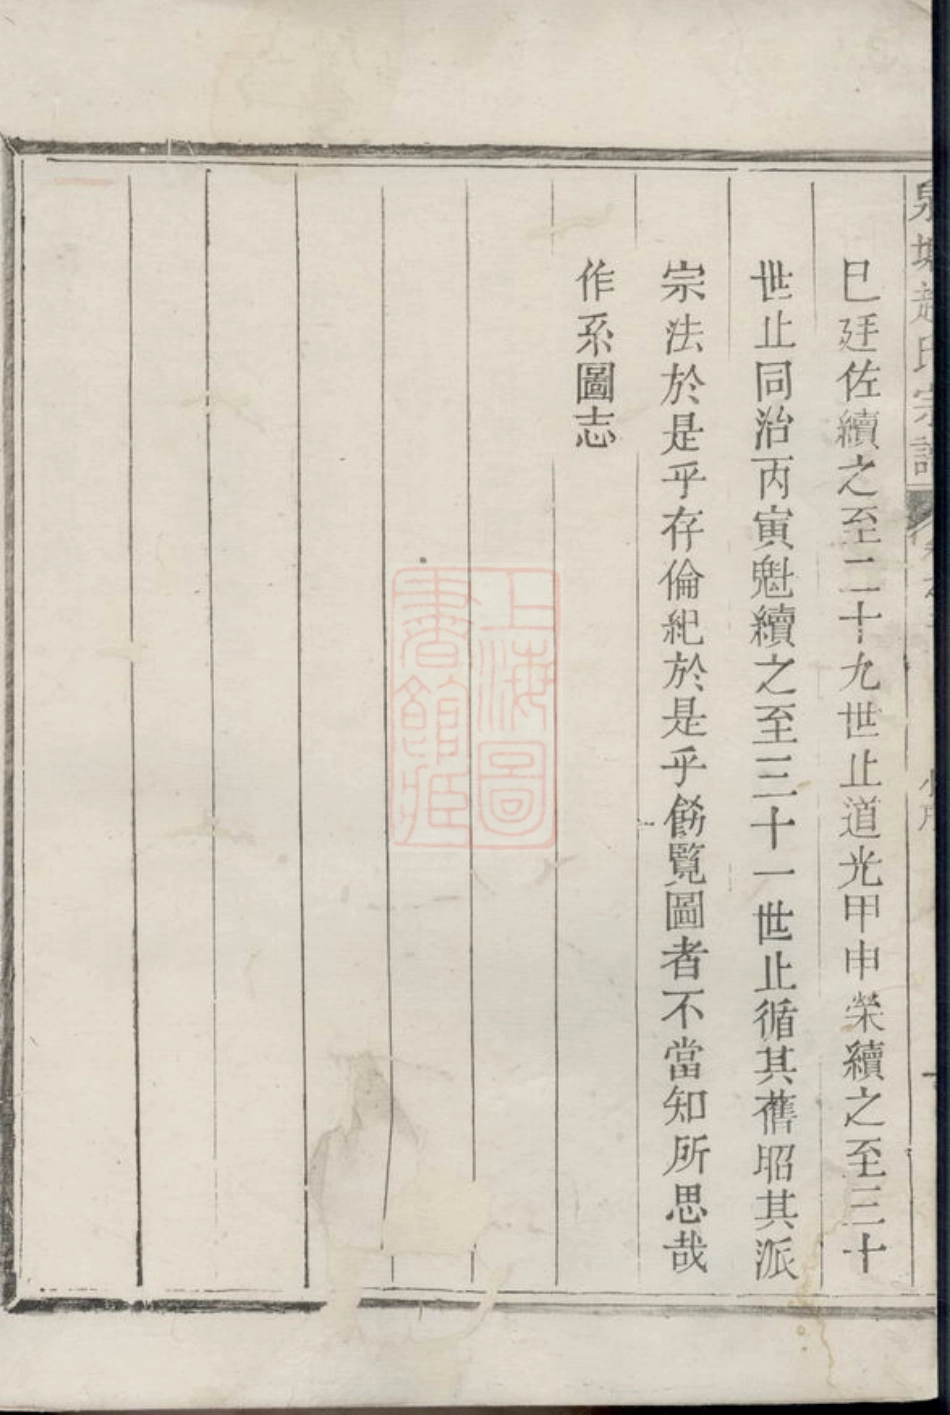 巳廷佐續之至二十九世止道光甲申榮續之至三十
世止同治丙寅魁續之至三十一世止循其舊昭其派
宗法於是乎存倫紀於是乎飭覽圖者不當知所思哉
作系圖志
上海圖
書館藏